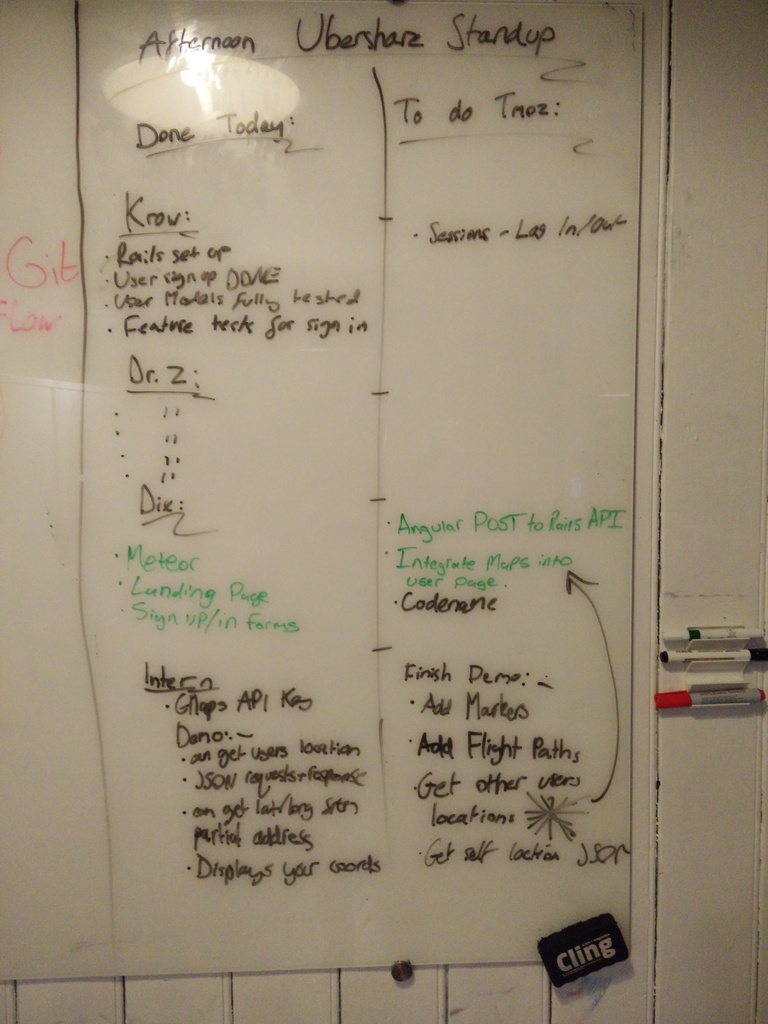 Afternoon Ubershare Standup
Done Today:
To do Tmoz:
Git
Flow
Krow:
· Rails set up
· User sign up DONE
· User Models fully tested
· Feature tests for sign in
· Sessions - Log In/Out
Dr. Z:
· "
· "
· "
· "
Dix:
· Meteor
· Landing Page
· Sign up/in forms
· Angular POST to Rails API
· Integrate Maps into
user page.
· Codename
Intern
· GMaps API Key
Demo:-
· can get users location
· JSON requests+response
· can get lat/long from
partial address
· Displays your coords
Finish Demo:-
· Add Markers
· Add Flight Paths
· Get other users
locations
· Get self loction JSON
Cling